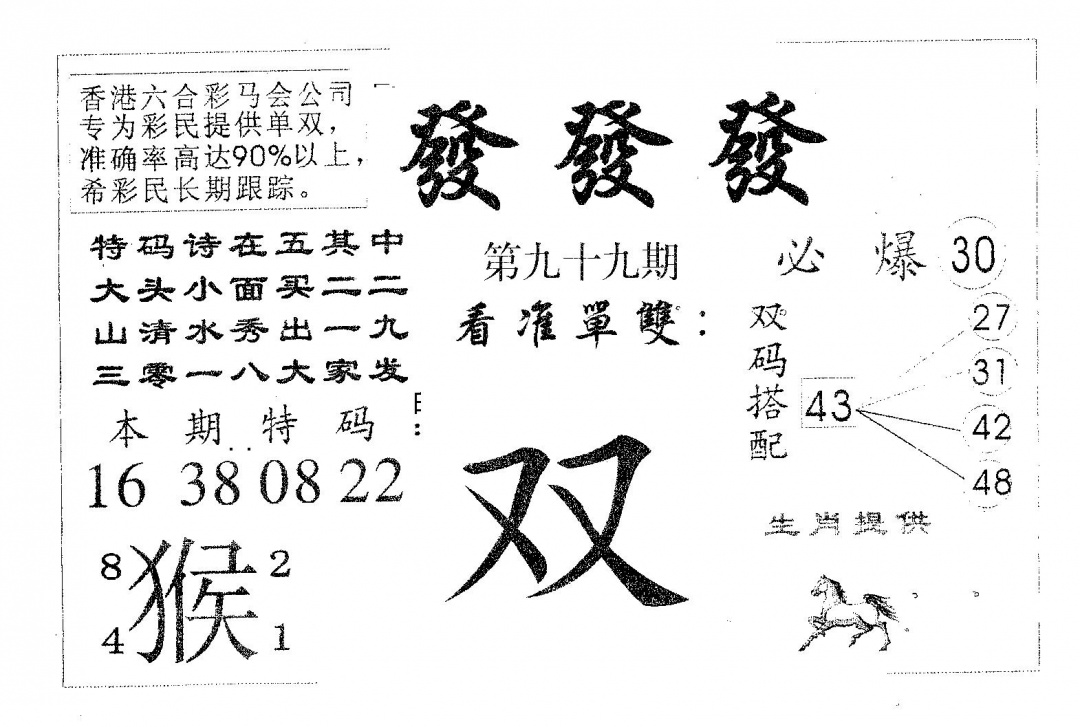 香港六合彩马会公司
专为彩民提供单双，
准确率高达90%以上，
希彩民长期跟踪。
發發發
特码诗在五其中
大头小面买二二
山清水秀出一九
三零一八大家发
第九十九期
看准單雙：
必爆30
双码搭配
43
27
31
42
48
本期特码：
16 38 08 22
8 2
猴
4 1
双
生肖提供